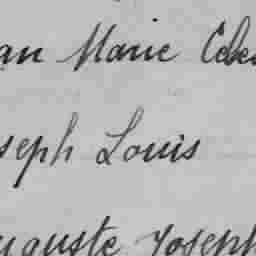 an Marie Cele
seph Louis
uguste Joseph